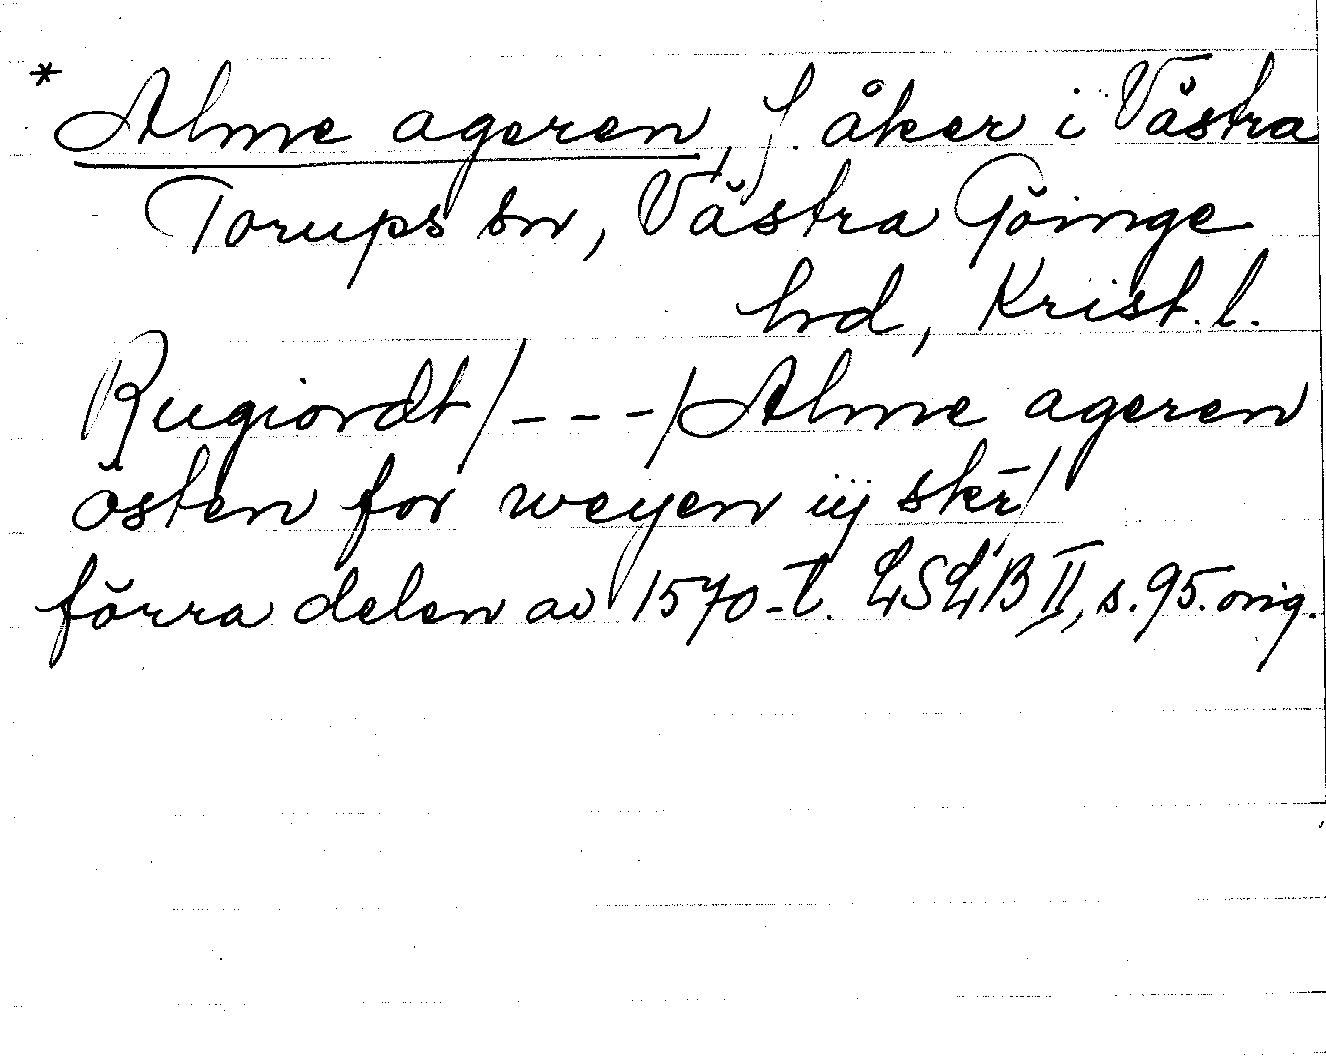 * Alme ageren, f. åker i Västra
Torups sn, Västra Göinge
hd, Krist. l.
Rugiordt / - - - / Alme ageren
östen for weyen iij skr̄ /
förra delen av 1570-t. LSLB II, s. 95. orig.